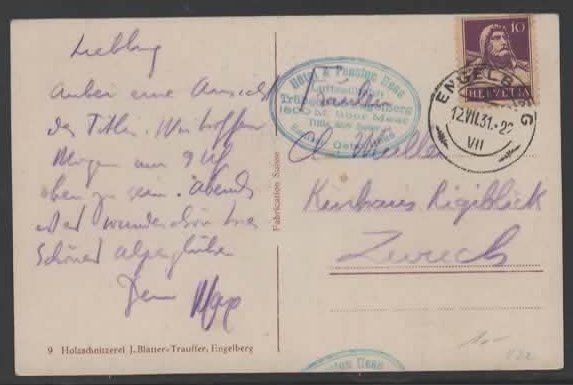 Liebling
Anbei eine Ansicht
des Titlis. Wir hoffen
Morgen um 9 Uhr
oben zu sein. Abends
wunderschön
Alpenglühen
Dein Max
9 Holzschnitzerei J. Blatter-Trauffer, Engelberg
Fabrication Suisse
Hôtel & Pension Hess
Luftseilbahn
1800 M. über Meer
10
HELVETIA
ENGELBERG
12.VII.31.-22
VII
Müller
Kurhaus Rigiblick
Zürich
Pension Hess